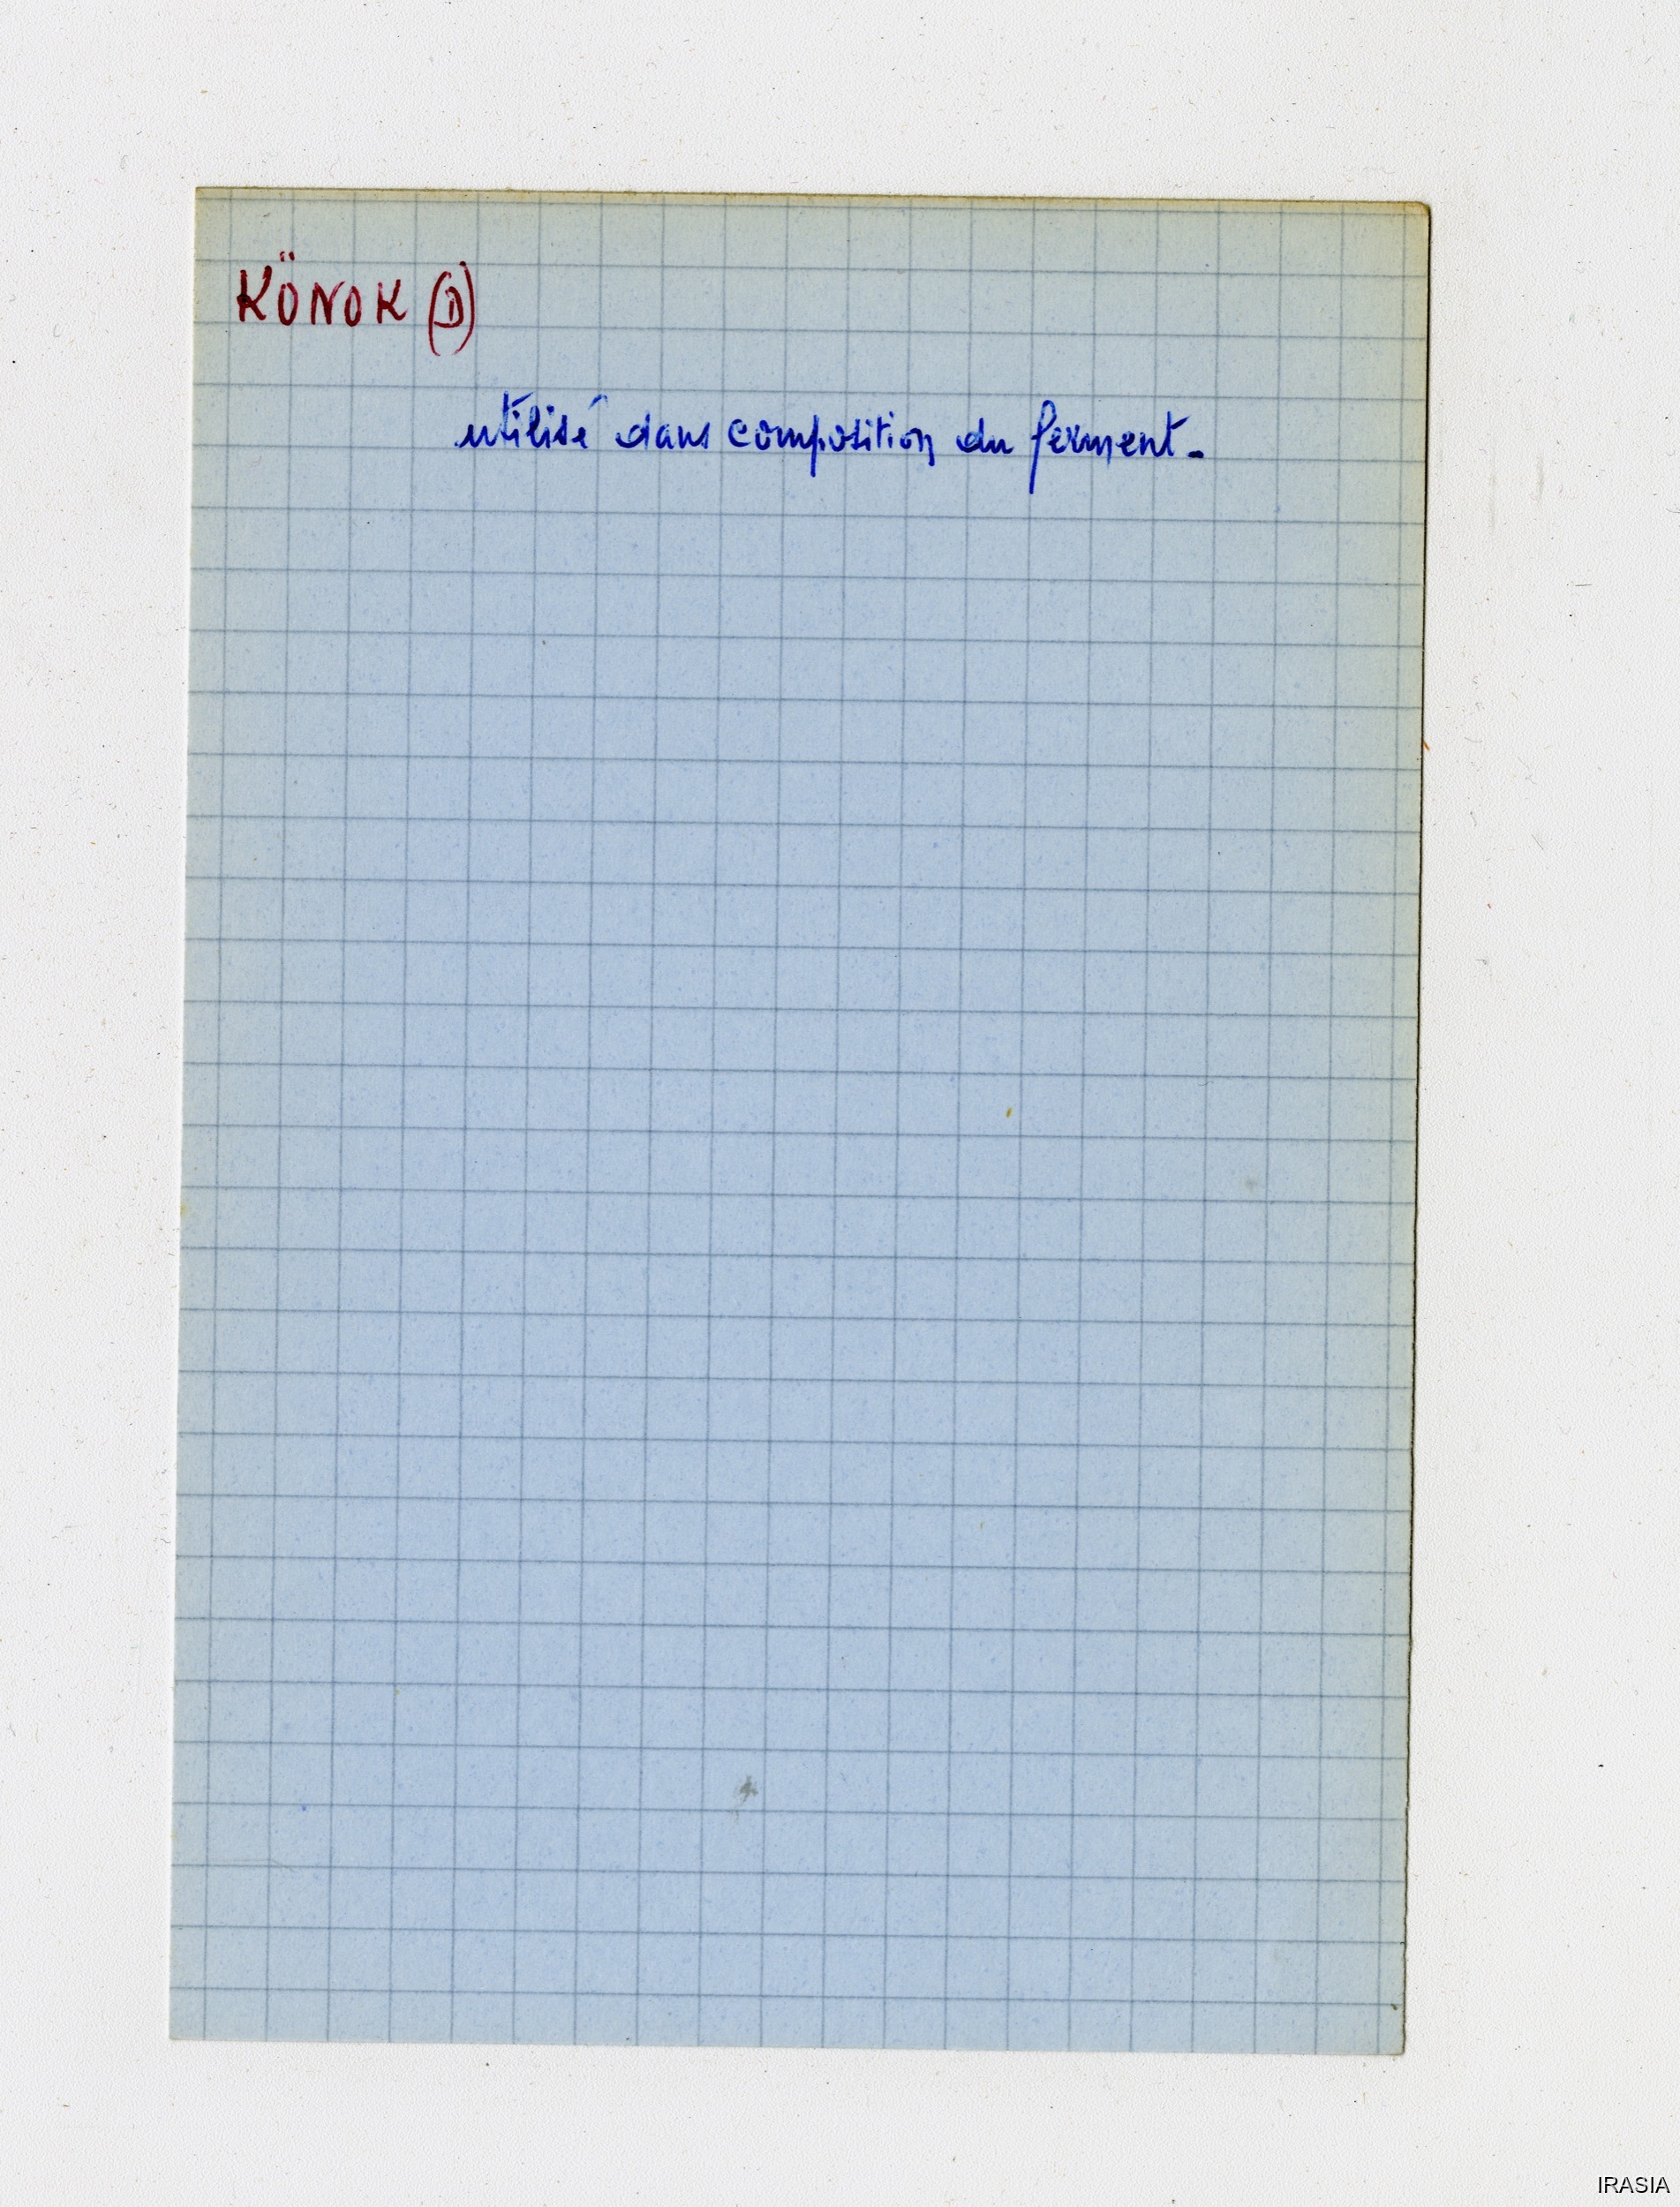 KÖNOK (D)
utilisé dans composition du ferment -
IRASIA